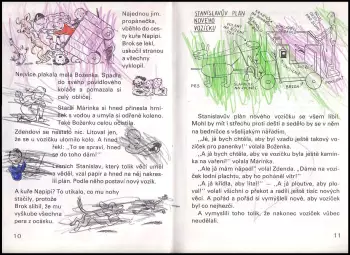 Najednou jim,
propánečka,
vběhlo do ces-
ty kuře Napipi.
Brok se lekl,
uskočil stranou
a všechny
vyklopil.
Nejvíce plakala malá Boženka. Spadla
do svého povidlového
koláče a pomazala si
celý obličej.
Starší Márinka si hned přinesla hrní-
ček s vodou a umyla si odřené koleno.
Také Boženku celou učistila.
Zdendovi se nestalo nic. Litoval jen,
že se u vozíku ulomilo kolo. A hned
řekl: „To se spraví, hned
se do toho dám!“
Jenže Stanislav, který tolik věcí uměl
a věděl, vzal papír a hned na něj nakres-
lil plán. Podle něho postaví nový vozík.
A kuře Napipi? To utíkalo, co mu nohy
stačily, protože
Brok slíbil, že mu
vyškube všechna
pera z ocásku.
10
STANISLAVŮV PLÁN
NOVÉHO
VOZÍČKU
PES
BRZDA
Stanislavův plán nového vozíčku se všem líbil.
Mohl by mít i střechu proti dešti a sedělo by se v něm
na bedničce s všelijakým nářadím.
„Jé, já bych chtěla, aby byl vzadu ještě takový vo-
zíček pro panenky!“ volala Boženka.
„A já bych chtěla, aby ve vozíčku byla ještě kamín-
ka na vaření!“ volala Márinka.
„Ale já mám nápad!“ volal Zdenda. „Dáme na vozí-
ček lodní plachtu, aby ho poháněl vítr!“
„A já křídla, aby lítal!“ – „A já ploutve, aby plo-
val!“ volali všichni o překot a radili ještě tisíc nových
věcí. A pořád a pořád si vymýšleli nové, aby vozíček
byl co nejhezčí.
A vymysleli toho tolik, že nakonec vozíček vůbec
neudělali.
11